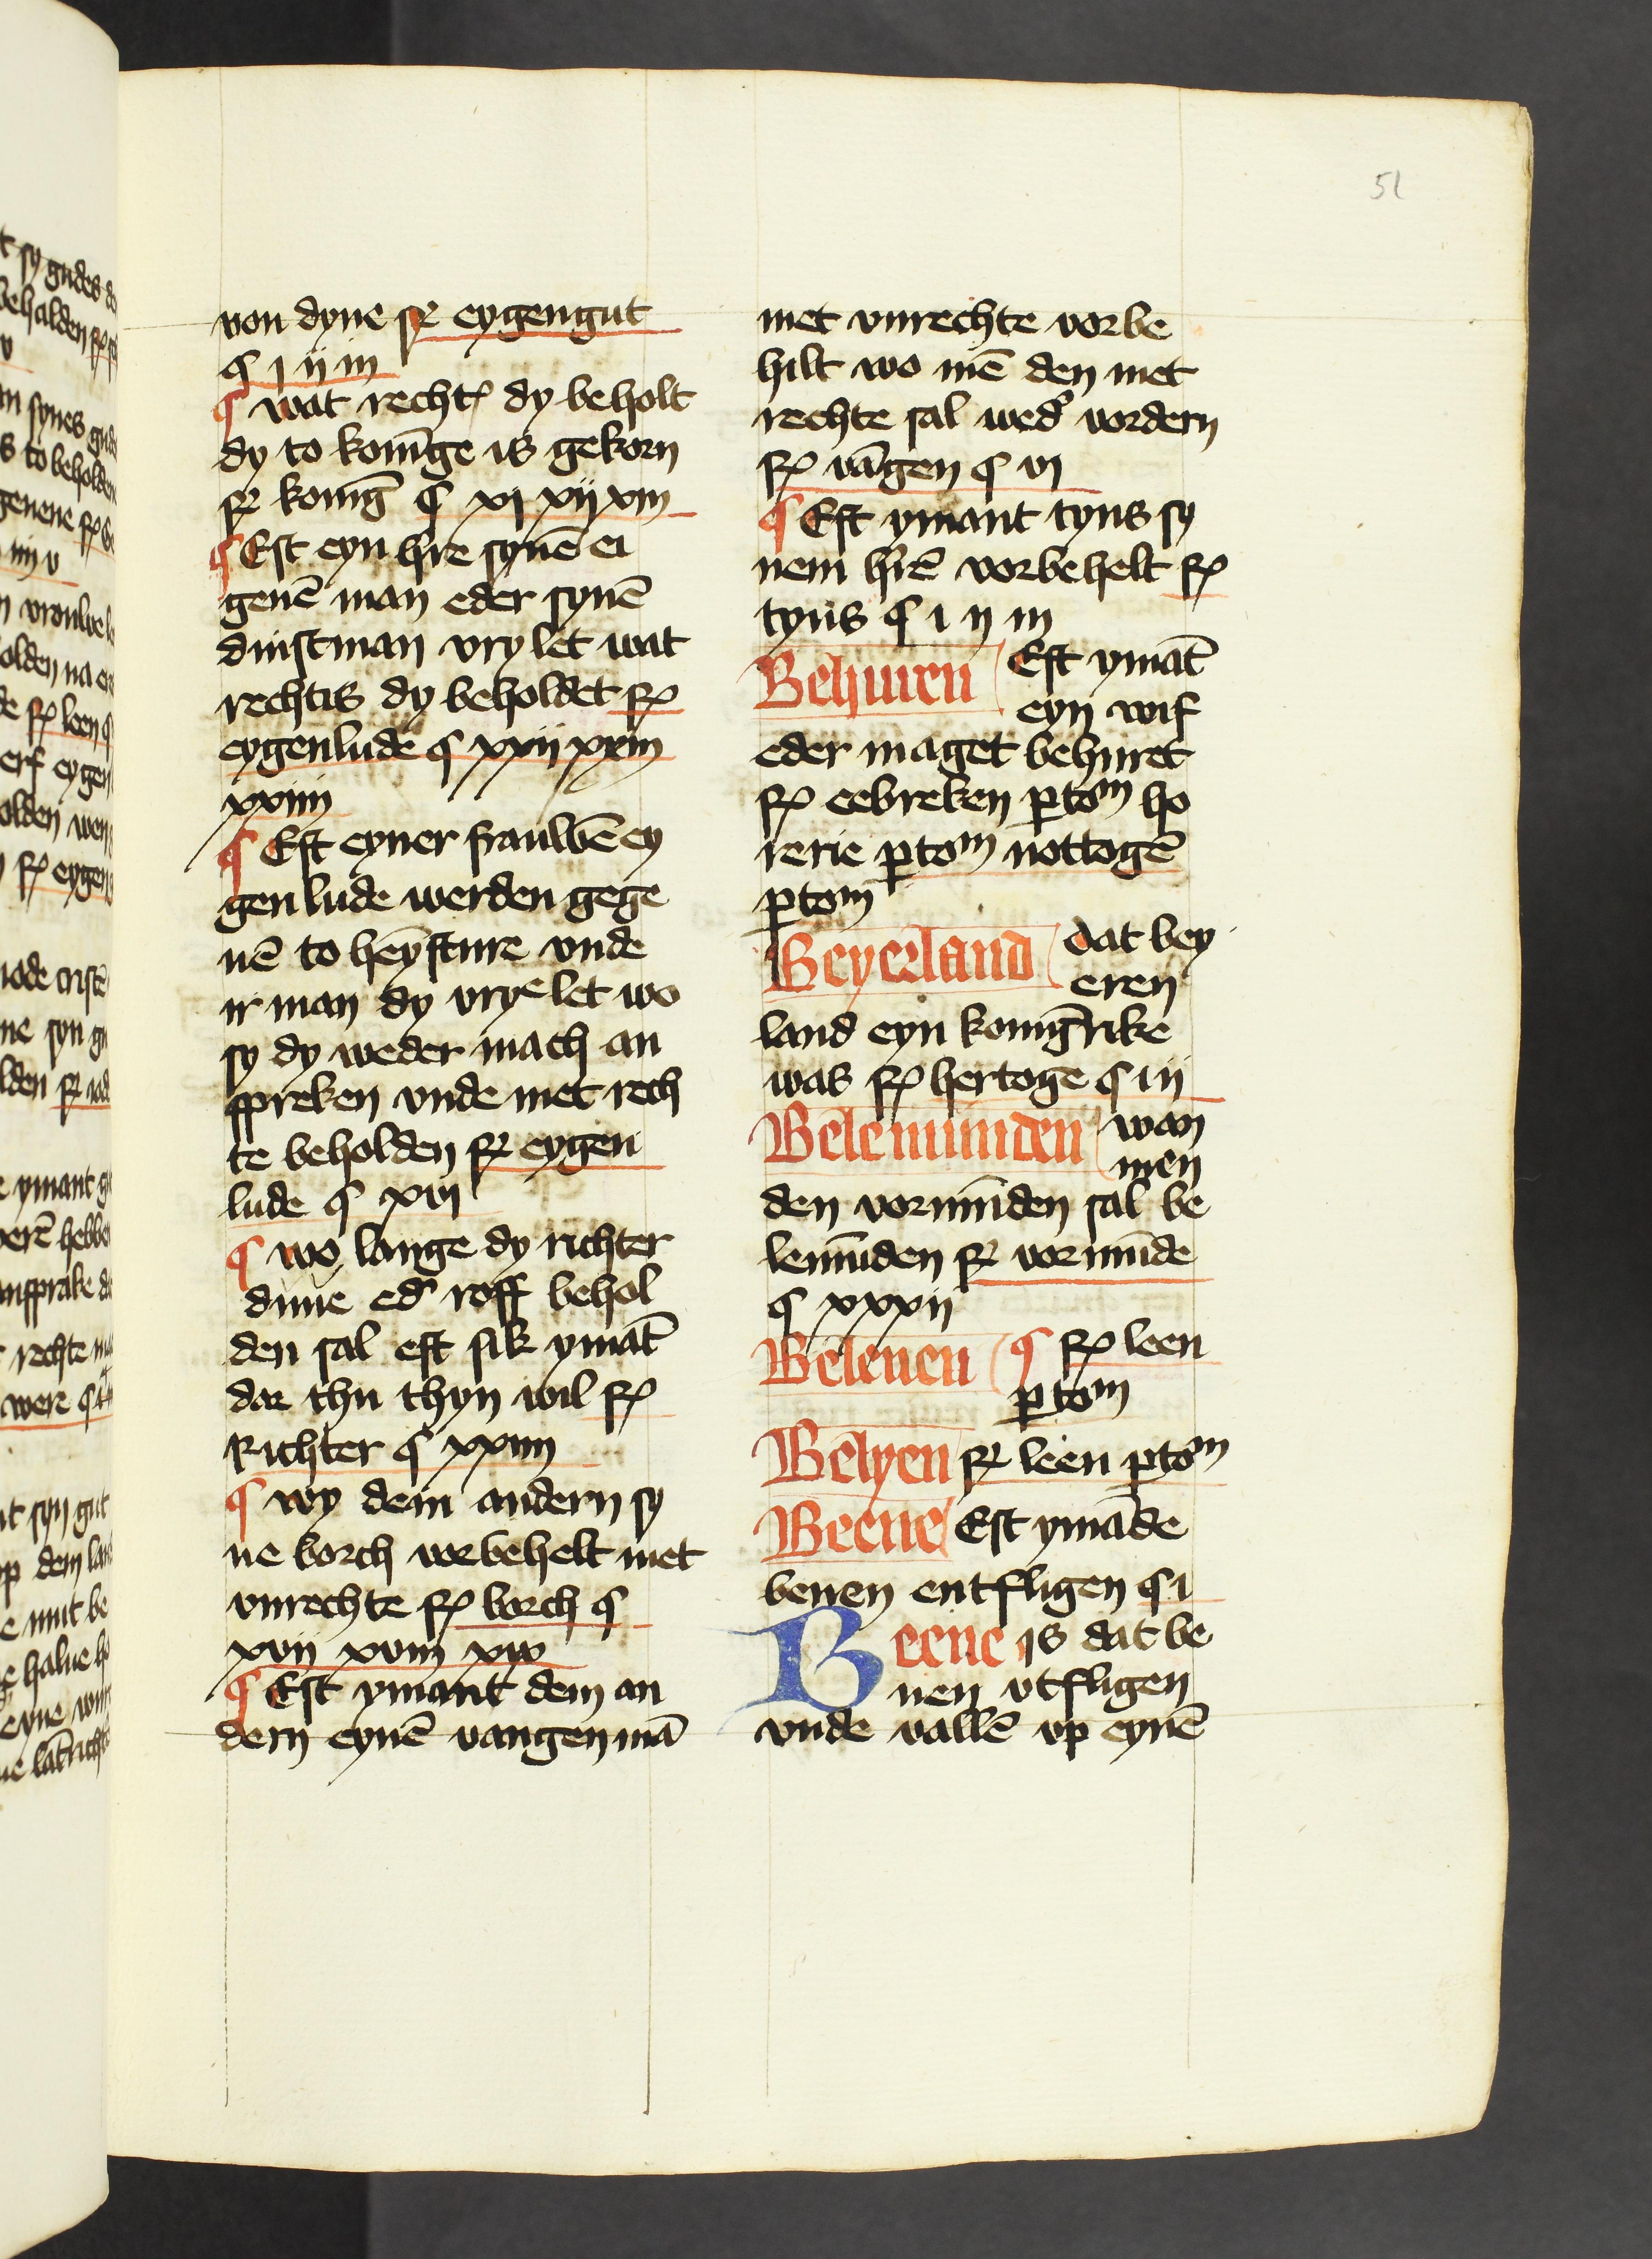 51
von dyne sꝛ eygengut
¶ j ij iij
¶ wat rechtꝭ dy beholt
dy to konīge is gekorn
sꝛ konīg ¶ xj xij xiij
¶ Eft eyn hr̄e synē ei
genē man eder synē
dinstman vry let wat
rechtis dy beholdet sꝛ
eygenlude ¶ xxij xxiij
xxiiij
¶ Eft eyner frauwē ey
gen lude werden gege
nē to hēysture vnde
ir man dy vrye let wo
sy dy weder mach an
spreken vnde met rech
te beholden sꝛ eygen
lude ¶ xvij
¶ wo lange dy richter
duue edʾ roff behol
den sal eft sik ymāt
dar thu thyn wil sꝛ
Richter ¶ xxiiij
¶ wy dem andern sy
ne borch vorbehelt met
vnrechte sꝛ borch ¶
xvij xviij xix
¶ Eft ymant dem an
dern eynē vangen mā
met vnrechte vorbe
hilt wo mē den met
rechte sal wedʾ vordern
sꝛ vāgen ¶ vj
¶ Eft ymant tyns sy
nem hr̄ē vorbehelt sꝛ
tyns ¶ i ij iij
Behuren Eft ymāt
eyn wif
eder maget behuret
sꝛ eebreken ꝑ totm ho
rerie ꝑ totm nottogē
ꝑ totm
Beyerland dat bey
eren
land eyn konīgrike
was sꝛ hertoge ¶ iij
Belemunden wan
men
den vormūden sal be
lemūden sꝛ vormūde
¶ xxxij
Belenen ¶ sꝛ leen
ꝑ totm
Belyen sꝛ leen ꝑ totm
Beene Eft ymāde
benen entfligen ¶ i
Beene is dat be
nen vtfligen
vnde vallē vp eynē